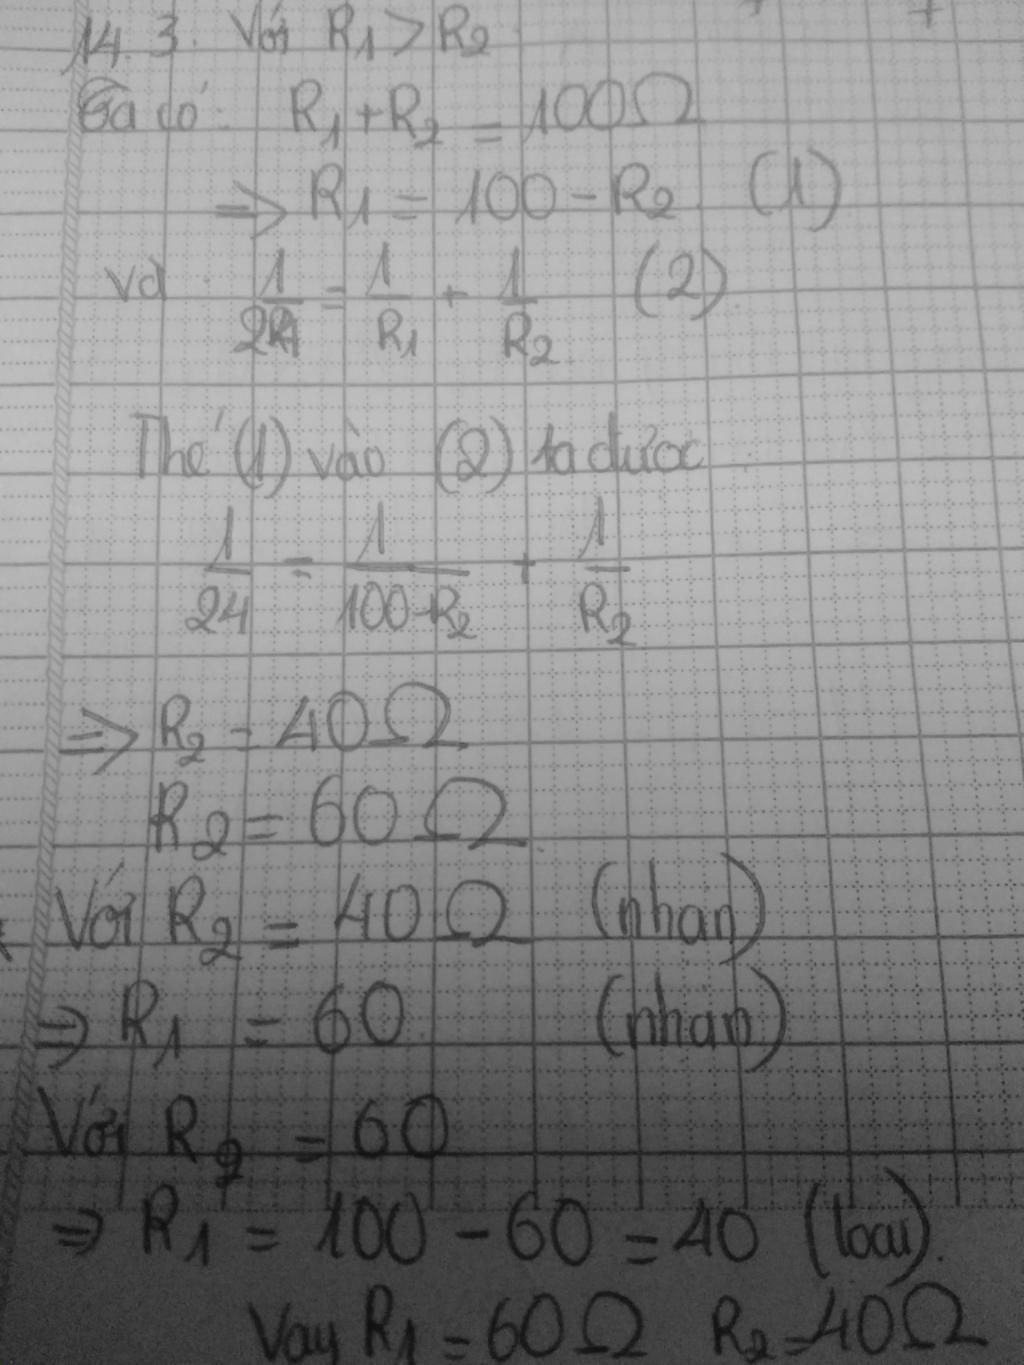 14.3. Với R₁ > R₂
Ta có: R₁ + R₂ = 100Ω
=> R₁ = 100 - R₂ (1)
và 1/24 = 1/R₁ + 1/R₂ (2)
Thế (1) vào (2) ta được
1/24 = 1/(100-R₂) + 1/R₂
=> R₂ = 40Ω
R₂ = 60Ω
Với R₂ = 40Ω (nhan)
=> R₁ = 60 (nhan)
Với R₂ = 60
=> R₁ = 100 - 60 = 40 (loai).
Vay R₁ = 60Ω R₂ = 40Ω